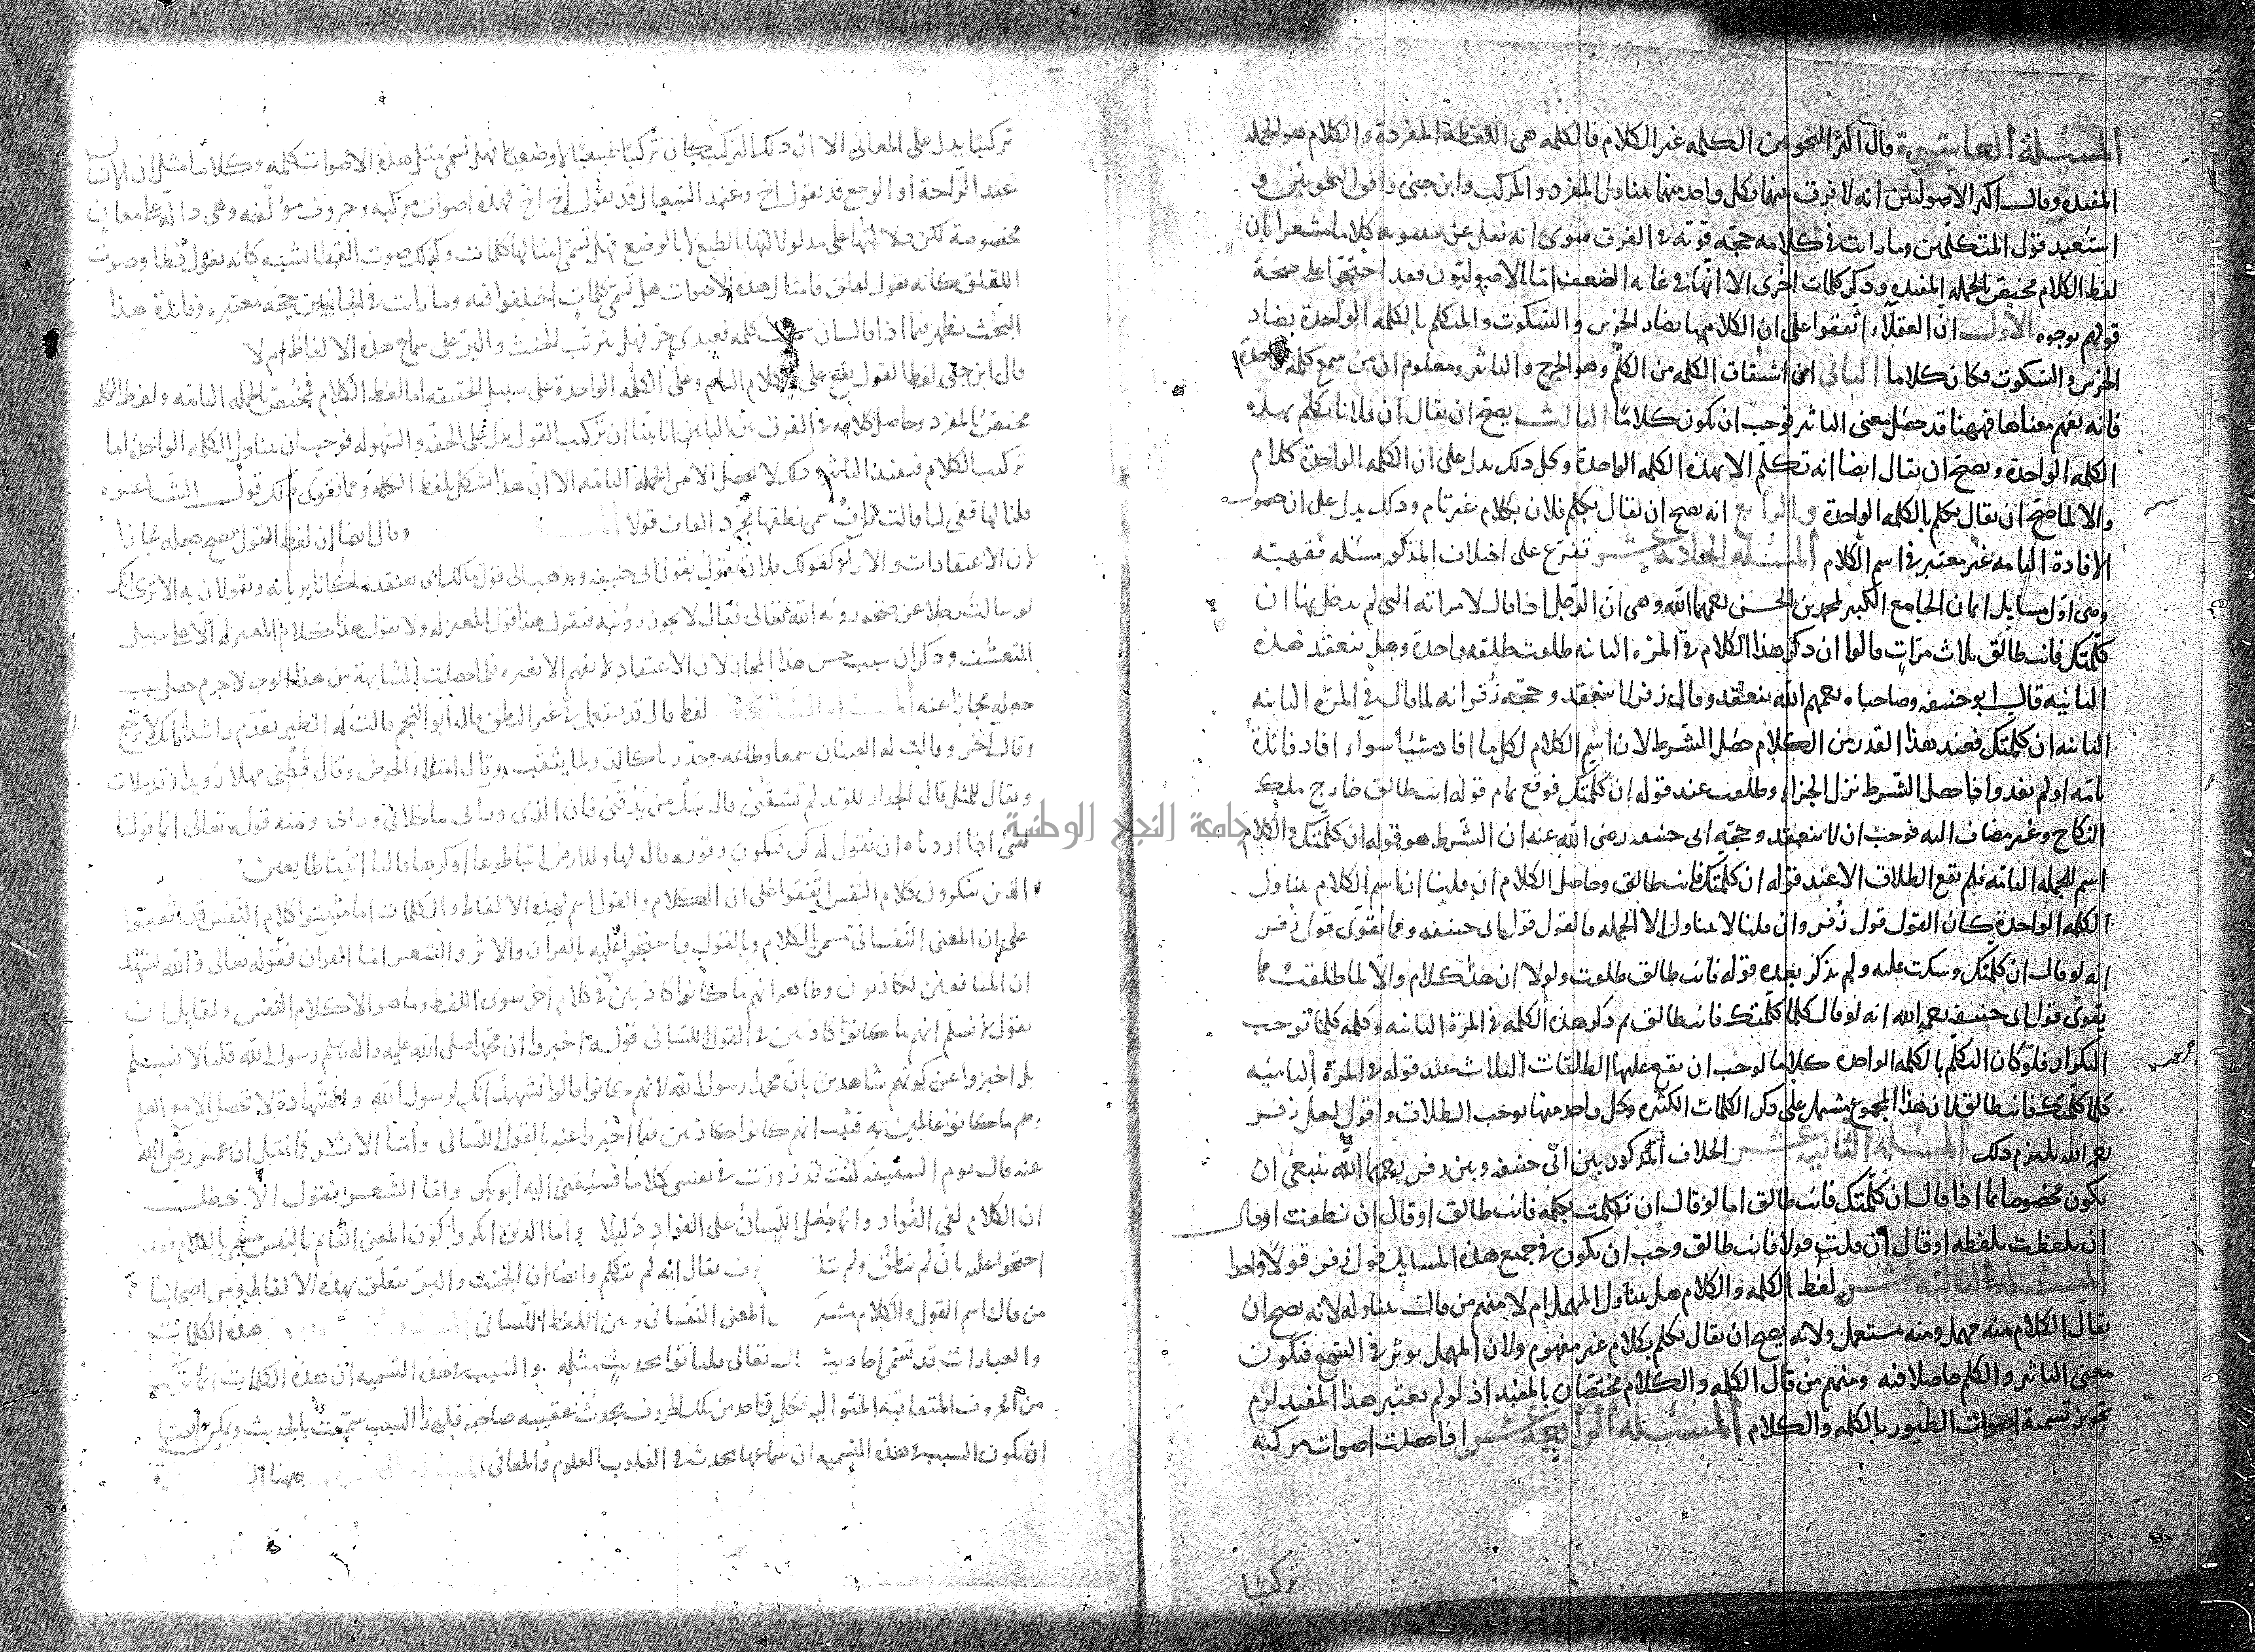 المسئلة العاشرة قال اكثر النحويين الكلمة غير الكلام فالكلمة هى اللفظة المفردة والكلام هو الجملة
المفيدة وقال اكثر الاصوليين انه لا فرق بينهما فكل واحد منهما يتناول المفرد والمركب وابن جنى وافق النحويين و
استبعد قول المتكلمين وما رايت فى كلامه حجة قوية فى الفرق سوى انه نقل عن سيبويه كلاما مشعرا بان
لفظ الكلام مختص بالجملة المفيدة وذكر كلمات اخرى الا انها فى غاية الضعف اما الاصوليون فقد احتجوا على صحة
قولهم بوجوه الاول ان العقلاء اتفقوا على ان الكلام ما يضاد الخرس والسكوت والتكلم بالكلمة الواحدة يضاد
الخرس والسكوت فكان كلاما الثانى ان اشتقاق الكلمة من الكلم وهو الجرح والتاثير ومعلوم ان من سمع كلمة واحدة
فانه يفهم معناها فههنا قد حصل معنى التاثير فوجب ان يكون كلاما الثالث يصح ان يقال ان فلانا تكلم بهذه
الكلمة الواحدة ويصح ان يقال ايضا انه ما تكلم الا بهذه الكلمة الواحدة وكل ذلك يدل على ان الكلمة الواحدة كلام
والا لما صح ان يقال تكلم بالكلمة الواحدة والرابع انه يصح ان يقال تكلم فلان بكلام غير تام وذلك يدل على ان حصول
الافادة التامة غير معتبر فى اسم الكلام المسئلة الحادية عشر تفرع على اختلاف المذكور مسئلة فقهية
وهى اول مسايل ايمان الجامع الكبير لمحمد بن الحسن رحمهما الله وهى ان الرجل اذا قال لامراته التى لم يدخل بها ان
كلمتك فانت طالق ثلاث مرات قالوا ان ذكر هذا الكلام فى المرة الثانية طلقت طلقة واحدة وهل تنعقد هذه
الثانية قال ابو حنيفة وصاحباه رحمهم الله تنعقد وقال زفر لا تنعقد وحجة زفر انه لما قال فى المرة الثانية
الثانية ان كلمتك فعند هذا القدر من الكلام حصل الشرط لان اسم الكلام لكل ما افاد شيئا سواء افاد فائدة
تامة او لم يفد واذا حصل الشرط نزل الجزاء وطلقت عند قوله ان كلمتك فوقع تمام قوله انت طالق خارج ملك
النكاح وغير مضاف اليه فوجب ان لا تنعقد وحجة ابى حنيفة رضى الله عنه ان الشرط هو قوله ان كلمتك والكلام
اسم للجملة التامة فلم يقع الطلاق الا عند قوله ان كلمتك فانت طالق وحاصل الكلام ان قلنا ان اسم الكلام يتناول
الكلمة الواحدة كان القول قول زفر وان قلنا لا يتناول الا الجملة فالقول قول ابى حنيفة ومما يقوى قول زفر
انه لو قال ان كلمتك وسكت عليه ولم يذكر بعده قوله فانت طالق طلقت ولولا ان هذا كلام والا لما طلقت مما
يقوى قول ابى حنيفة رحمه الله انه لو قال كلما كلمتك فانت طالق ثم ذكر هذه الكلمة فى المرة الثانية وكلمة كلما توجب
التكرار فلو كان التكلم بالكلمة الواحدة كلاما لوجب ان يقع عليها الطلقات الثلاث عند قوله فى المرة الثانية
كلما كلمتك فانت طالق لان هذا المجموع مشتمل على ذكر الكلمات الكثيرة وكل واحد منها يوجب الطلاق واقول لعل زفر
رحمه الله يلتزم ذلك المسئلة الثانية عشر الخلاف المذكور بين ابى حنيفة وبين زفر رحمهما الله ينبغى ان
يكون مخصوصا بما اذا قال ان كلمتك فانت طالق اما لو قال ان تكلمت بكلمة فانت طالق او قال ان نطقت او قال
ان تلفظت بلفظة او قال ان قلت قولا فانت طالق وجب ان يكون فى جميع هذه المسايل قول زفر قولا واحدا
المسئلة الثالثة عشر لفظ الكلمة والكلام هل يتناول المهمل ام لا منهم من قال يتناوله لانه يصح ان
يقال الكلام منه مهمل ومنه مستعمل ولانه يصح ان يقال تكلم بكلام غير مفهوم ولان المهمل يوثر فى السمع فيكون
معنى التاثير والكلم حاصلا فيه ومنهم من قال الكلمة والكلام مختصان بالمفيد اذ لو لم يعتبر هذا المفيد لزم
تجويز تسمية اصوات الطيور بالكلمة والكلام المسئلة الرابعة عشر اذا حصلت اصوات مركبة
تركيبا
تركيبا يدل على المعانى الا ان ذلك التركيب كان تركيبا طبيعيا لا وضعيا فهل تسمى مثل هذه الاصوات كلمة وكلاما مثل ان الانسان
عند الراحة او الوجع قد يقول اخ وعند السعال قد يقول اخ اخ فهذه اصوات مركبة وحروف مؤلفة وهى دالة على معان
مخصوصة لكن دلالتها على مدلولاتها بالطبع لا بالوضع فهل تسمى امثالها كلمات وكذلك صوت القطا يشبه كانه يقول قطا وصوت
اللقلق كانه يقول لقلق فامثال هذه الاصوات هل تسمى كلمات اختلفوا فيه وما رايت فى الجانبين حجة معتبرة وفائدة هذا
البحث يظهر فيما اذا قال ان كلمة فعبدى حر فهل يترتب الحنث والبر على سماع هذه الالفاظ ام لا
قال ابن جنى لفظ القول يقع على الكلام التام وعلى الكلمة الواحدة على سبيل الحقيقة اما لفظ الكلام فمختص بالجملة التامة ولفظ الكلمة
مختص بالمفرد وحاصل كلامه فى الفرق بين البابين انا بينا ان تركيب القول يدل على الخفة والسهولة فوجب ان يتناول الكلمة الواحدة اما
تركيب الكلام فيفيد التاثير وذلك لا يحصل الا من الجملة التامة الا ان هذا يشكل بلفظ الكلمة ومما يقوى ذلك قول الشاعر
قلنا لها قفى لنا قالت قاف سمى نطقها بمجرد القاف قولا وقال ايضا ان لفظ القول يصح جعله مجازا
عن الاعتقادات والاراء كقولك فلان يقول بقول ابى حنيفة ويذهب الى قول مالك اى يعتقد ما كانا يريانه ويقولان به الا ترى انك
لو سالت رجلا عن صحة رؤية الله تعالى فقال لا يجوز رؤيته فتقول هذا قول المعتزلة ولا تقول هذا كلام المعتزلة الا على سبيل
التعسف وذكر ان سبب حسن هذا المجاز لان الاعتقاد لا يفهم الا بغيره فلما حصلت المشابهة من هذا الوجه لا جرم حصل سبب
جعله مجازا عنه لفظ قال قد يستعمل فى غير النطق قال ابو النجم قالت له الطير تقدم راشدا انك لا ترجع
وقال اخر وقالت له العينان سمعا وطاعة وحدرتا كالدر لما يثقب وقال امتلاء الحوض وقال قطنى مهلا رويدا قد ملات
ويقال للمثل قال الجدار للوتد لم تشقنى قال سل من يدقنى فان الذى ورايى ما خلانى ورايى ومنه قوله تعالى انما قولنا
لشىء اذا اردناه ان نقول له كن فيكون وقوله قال لها وللارض ائتيا طوعا او كرها قالتا اتينا طايعين
الذين ينكرون كلام النفس اتفقوا على ان الكلام والقول اسم لهذه الالفاظ والكلمات اما مثبتوا كلام النفس فقد اتفقوا
على ان المعنى النفسانى يسمى بالكلام وبالقول واحتجوا عليه بالقران والاثر والشعر اما القران فقوله تعالى والله يشهد
ان المنافقين لكاذبون وظاهر انهم ما كانوا كاذبين فى كلام آخر سوى اللفظ وما هو الا كلام النفس ولقايل ان
يقول لا نسلم انهم ما كانوا كاذبين فى القول اللسانى قوله اخبروا ان محمدا صلى الله عليه واله وسلم رسول الله قلنا لا نسلم
بل اخبروا عن كونهم شاهدين بان محمدا رسول الله لانهم كانوا قالوا نشهد انك لرسول الله والشهادة لا تحصل الا مع العلم
وهم ما كانوا عالمين به فثبت انهم كانوا كاذبين فيما اخبروا عنه بالقول اللسانى واما الاثر فما نقل ان عمر رضى الله
عنه قال يوم السقيفة كنت قد زورت فى نفسى كلاما فسبقنى اليه ابو بكر واما الشعر فقول الاخطل
ان الكلام لفى الفواد وانما جعل اللسان على الفواد دليلا واما الذين انكروا كون المعنى القائم بالنفس مسمى بالكلام
احتجوا عليه بان لم ينطق ولم يتلـ ـف يقال انه لم يتكلم وايضا ان الحنث والبر يتعلق بهذه الالفاظ ومن اصحابنا
من قال اسم القول والكلام مشتر المعنى النفسانى وبين اللفظ اللسانى هذه الكلمات
والعبارات قد تسمى احاديث تعالى فلياتوا بحديث مثله والسبب فى هذه التسمية ان هذه الكلمات انما
من الحروف المتعاقبة المتوالية فكل واحد من تلك الحروف يحدث عقيب صاحبه فلهذا السبب سميت بالحديث ويمكن
ان يكون السبب فى هذه التسمية ان سماعها يحدث فى القلوب العلوم والمعانى ههنا
جامعة النجاح الوطنية